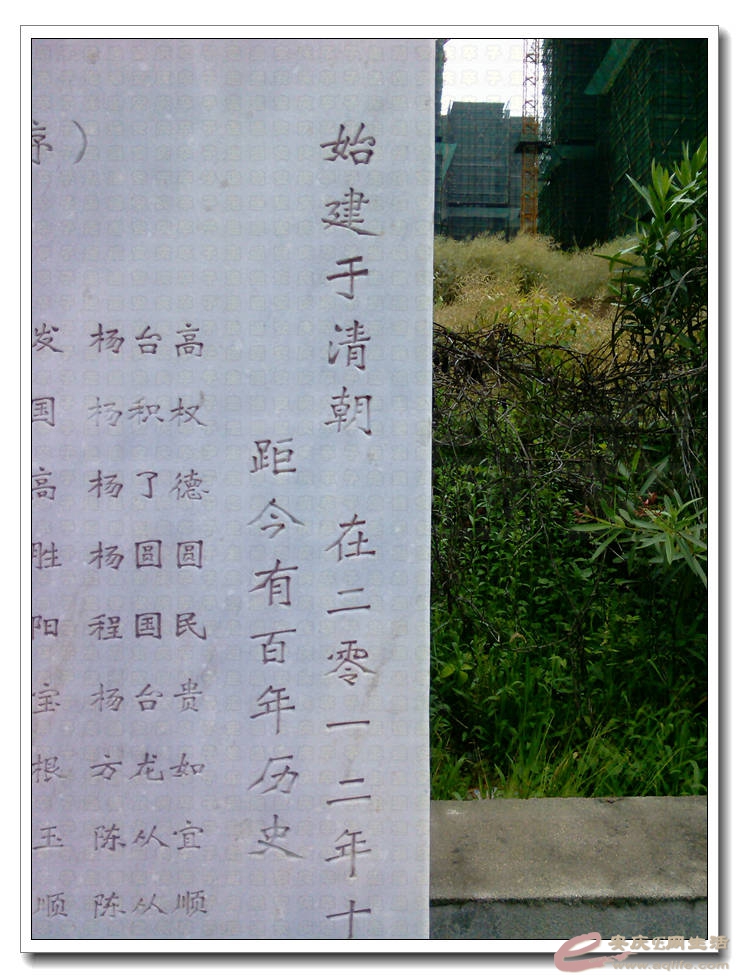 始建于清朝 在二零一二年十
距今有百年历史
序）
发 杨台高
国 杨积权
高 杨了德
胜 杨圆圆
阳 程国民
宝 杨台贵
根 方龙如
玉 陈从宜
顺 陈从顺
安庆E网生活
www.aqlife.com